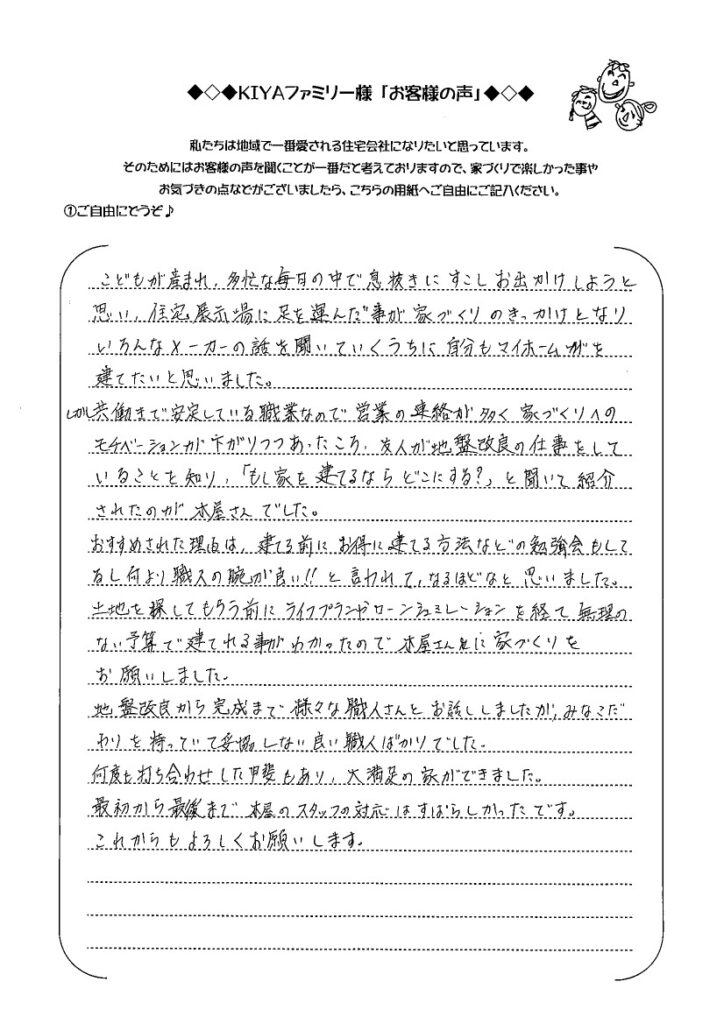 ◆◇◆KIYAファミリー様「お客様の声」◆◇◆
私たちは地域で一番愛される住宅会社になりたいと思っています。
そのためにはお客様の声を聞くことが一番だと考えておりますので、家づくりで楽しかった事や
お気づきの点などがございましたら、こちらの用紙へご自由にご記入ください。
①ご自由にどうぞ♪
こどもが産まれ、多忙な毎日の中で息抜きにすこしお出かけしようと
思い、住宅展示場に足を運んだ事が家づくりのきっかけとなり
いろんなメーカーの話を聞いていくうちに自分もマイホームがを
建てたいと思いました。
しかし共働きで安定している職業なので営業の連絡が多く家づくりへの
モチベーションが下がりつつあったころ、友人が地盤改良の仕事をして
いることを知り、「もし家を建てるならどこにする?」と聞いて紹介
されたのが木屋さんでした。
おすすめされた理由は、建てる前にお得に建てる方法などの勉強会もして
るし何より職人の腕が良い!!と言われて、なるほどなと思いました。
土地を探してもらう前にライフプランやローンシュミレーションを経て無理の
ない予算で建てれる事がわかったので木屋さんに家づくりを
お願いしました。
地盤改良から完成まで様々な職人さんとお話ししましたが、みなこだ
わりを持っていて妥協しない良い職人ばかりでした。
何度も打ち合わせした甲斐もあり、大満足の家ができました。
最初から最後まで木屋のスタッフの対応はすばらしかったです。
これからもよろしくお願いします。